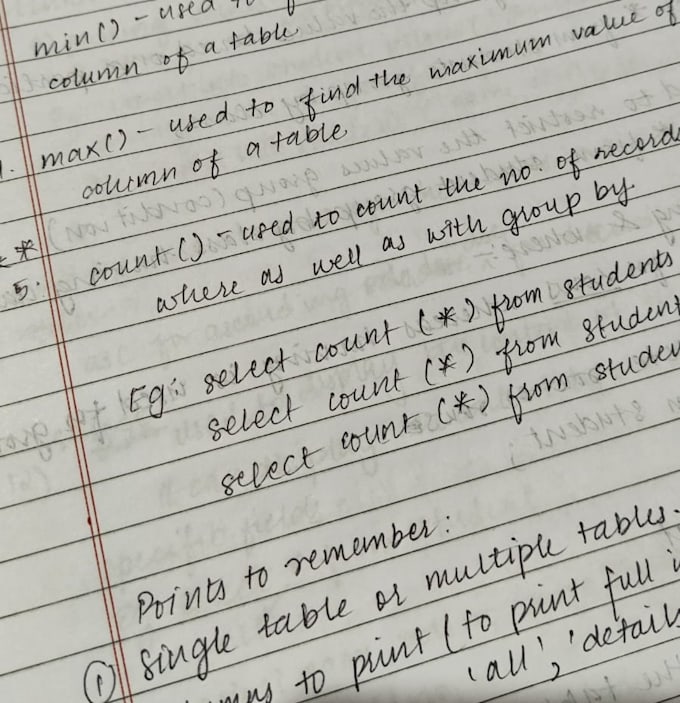 min() - used to
column of a table
max() - used to find the maximum value of
column of a table
**
5. count() - used to count the no. of records
where as well as with group by
Eg: select count (*) from students
select count (*) from student
select count (*) from studen
Points to remember:
① Single table or multiple tables.
to print (to print full
'all', 'details